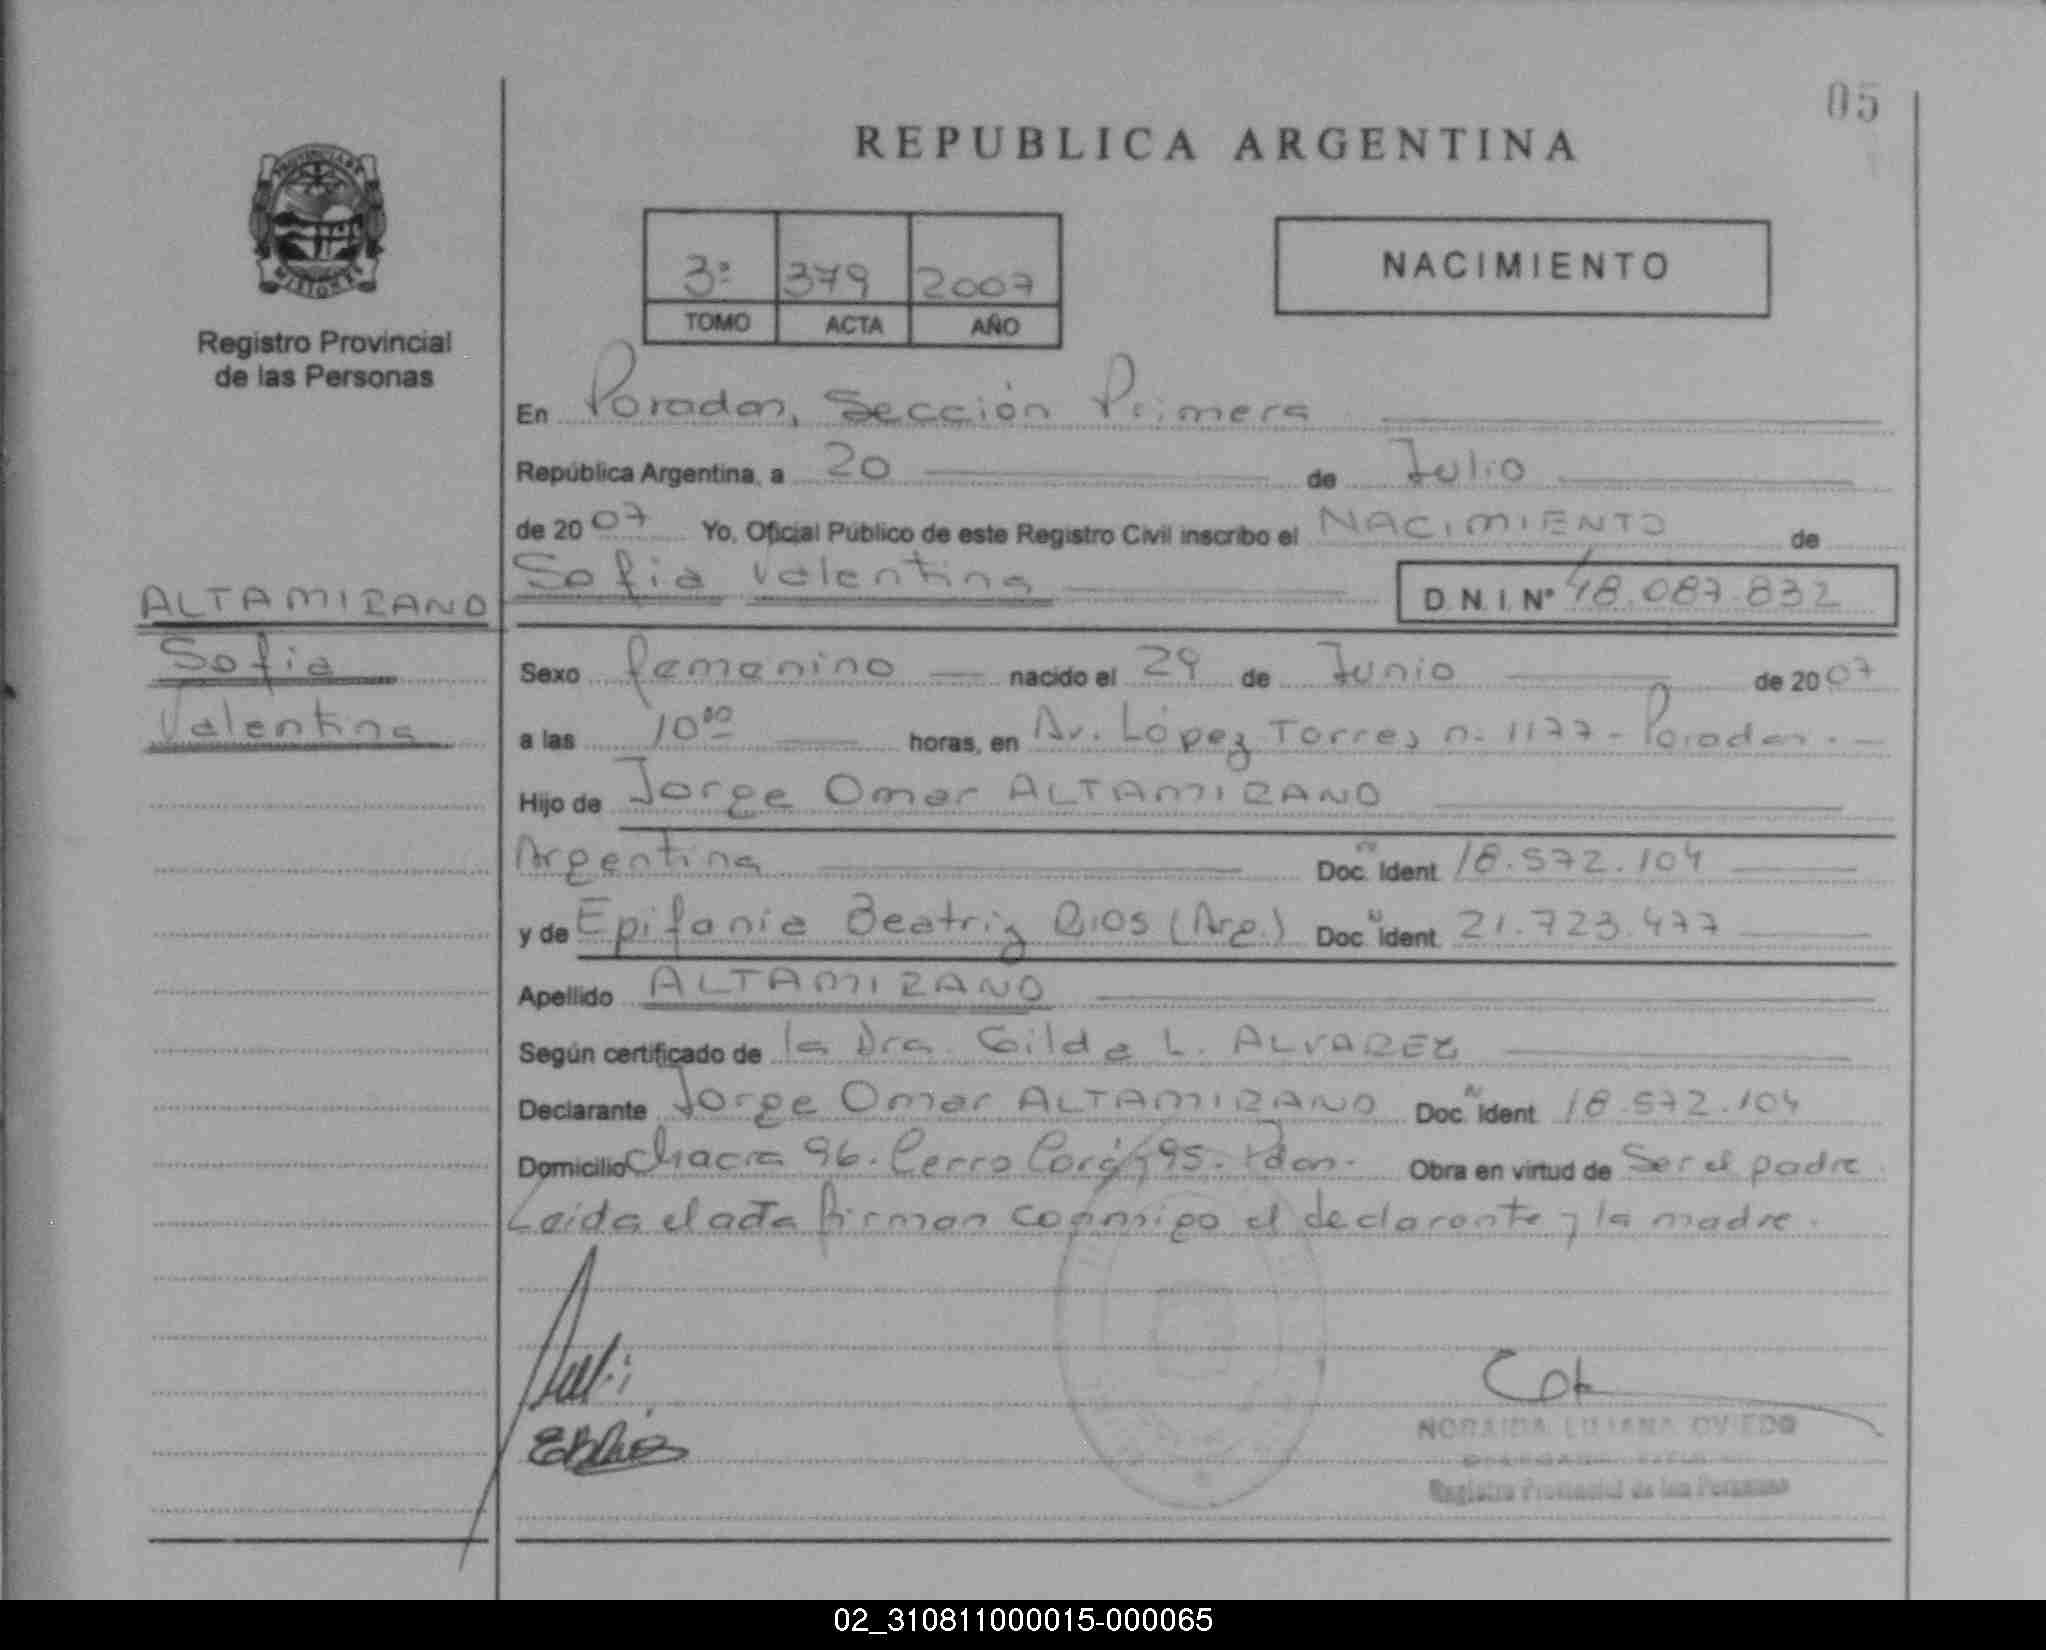 05
REPUBLICA ARGENTINA
PROVINCIA DE
MISIONES
Registro Provincial
de las Personas
3º 379 2007
TOMO ACTA AÑO
NACIMIENTO
En Posadas, Sección Primera
República Argentina, a 20 de Julio
de 2007 Yo, Oficial Público de este Registro Civil inscribo el NACIMIENTO de
Sofia Valentina D.N.I. Nº 48.087.832
ALTAMIRANO
Sofia
Valentina
Sexo femenino nacido el 29 de Junio de 2007
a las 10 00 horas, en Av. López Torres n. 1177 - Posadas. -
Hijo de Jorge Omar ALTAMIRANO
Argentina Doc. Ident 18.572.104
y de Epifania Beatriz RIOS (Arg.) Doc. Ident. 21.723.477
Apellido ALTAMIRANO
Según certificado de la Dra. Gilda L. ALVAREZ
Declarante Jorge Omar ALTAMIRANO Doc. Ident. 18.572.104
Domicilio Chacra 96. Cerro Corá 95. Pdas. Obra en virtud de Ser el padre
Leida el acta firman conmigo el declarante y la madre.
NORAIDA LUJANA OVIEDO
Registro Provincial de las Personas
02_310811000015-000065